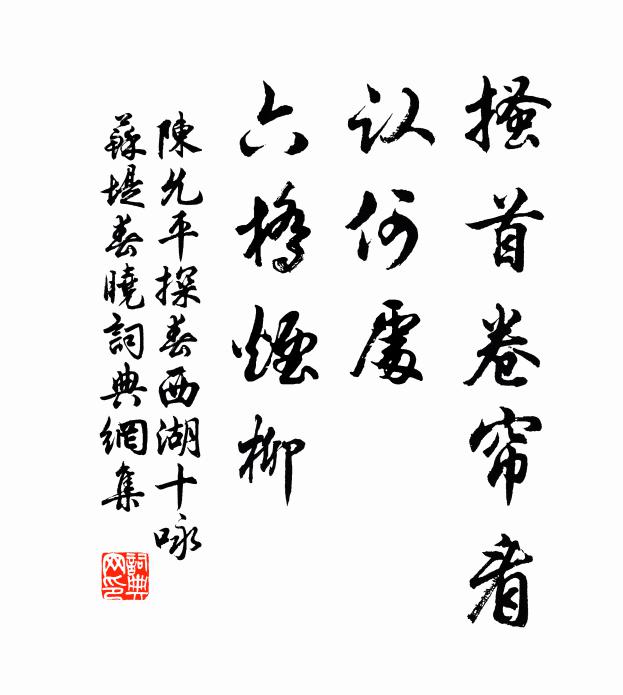 搔首卷帘看
认何處
六橋煙柳
陳允平探春西湖十咏
蘇堤春曉詞典網集
詞典
网印